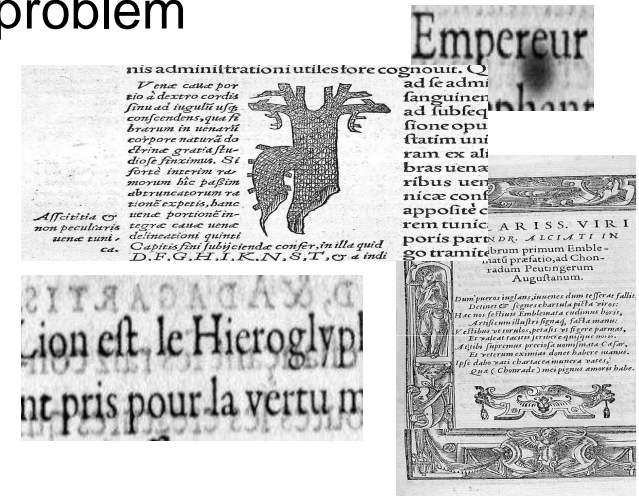 problem
Empereur
nis administrationi utiles fore cognouit. Q
Venæ cauæ por
tio à dextro cordis
sinu ad iugulū usq;
conscendens, qua fi
brarum in uenarū
corpore naturā do
ctrinæ gratia stu-
diose finximus. Si
fortè interim ra-
morum hîc paßim
abtruncatorum ra
tionē expetis, hanc
uenæ portionē in-
tegræ cauæ uenæ
delineationi quinti
Capitis fini subijciendæ confer, in illa quid
D, F, G, H, I, K, N, S, T, & a indi
Affcititia &
non peculiaris
uenæ tuni,
ca.
ad se admi
sanguinen
ad subseq
sione opu
statim uni
ram ex ali
bras uenæ
ribus uen
nicæ conf
apposite c
rem tunic
poris part
go tramite
Lion est le Hieroglyph
nt pris pour la vertu m
ARISS. VIRI
NDR. ALCIATI IN
ibrum primum Emble-
matū præfatio, ad Chon-
radum Peutingerum
Augustanum.
Dum pueros iuglans, iuuenes dum tesseræ fallit,
Detinet & segnes chartula picta viros:
Hæc nos festiuis Emblemata cudimus horis,
Artificum illustri signaq; facta manu:
Vestibus ut torulos, petasis ut figere parmas,
Et valeat tacitis scribere quisque notis.
At tibi supremus preciosa nomismata Cæsar,
Et veterum eximias donet habere manus.
Ipse dabo vati chartacea munera vates,
Quæ (Chonrade) mei pignus amoris habe.